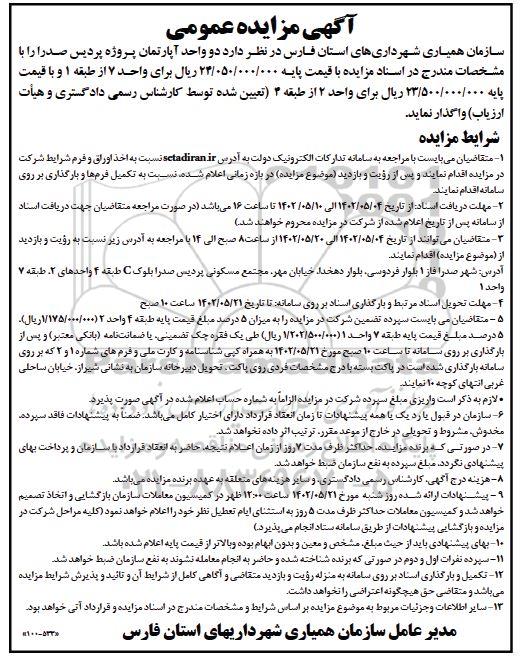 آگهی مزایده عمومی
سازمان همیاری شهرداری‌های استان فارس در نظر دارد دو واحد آپارتمان پروژه پردیس صدرا را با
مشخصات مندرج در اسناد مزایده با قیمت پایه ۲۴/۰۵۰/۰۰۰/۰۰۰ ریال برای واحد ۷ از طبقه ۱ و با قیمت
پایه ۲۳/۵۰۰/۰۰۰/۰۰۰ ریال برای واحد ۲ از طبقه ۴ (تعیین شده توسط کارشناس رسمی دادگستری و هیأت
ارزیاب) واگذار نماید.
شرایط مزایده
۱- متقاضیان می‌بایست با مراجعه به سامانه تدارکات الکترونیک دولت به آدرس setadiran.ir نسبت به اخذ اوراق و فرم شرایط شرکت
در مزایده اقدام نمایند و پس از رؤیت و بازدید (موضوع مزایده) در بازه زمانی اعلام شده، نسبت به تکمیل فرم‌ها و بارگذاری بر روی
سامانه اقدام نمایند.
۲- مهلت دریافت اسناد: از تاریخ ۱۴۰۲/۰۵/۰۴ الی ۱۴۰۲/۰۵/۱۰ تا ساعت ۱۶ می‌باشد (در صورت مراجعه متقاضیان جهت دریافت اسناد
از سامانه پس از تاریخ اعلام شده از شرکت در مزایده محروم خواهند شد.)
۳- متقاضیان می توانند از تاریخ ۱۴۰۲/۰۵/۰۴ الی ۱۴۰۲/۰۵/۲۰ از ساعت ۸ صبح الی ۱۴ با مراجعه به آدرس زیر نسبت به رؤیت و بازدید
از (موضوع مزایده) اقدام نمایند.
آدرس: شهر صدرا فاز ۱ بلوار فردوسی، بلوار دهخدا، خیابان مهر، مجتمع مسکونی پردیس صدرا بلوک C طبقه ۴ واحدهای ۲، طبقه ۷
واحد ۱
۴- مهلت تحویل اسناد مرتبط و بارگذاری اسناد بر روی سامانه: تا تاریخ ۱۴۰۲/۰۵/۲۱ ساعت ۱۰ صبح
۵ - متقاضیان می بایست سپرده تضمین شرکت در مزایده را به میزان ۵ درصد مبلغ قیمت پایه طبقه ۴ واحد ۲ (۱/۱۷۵/۰۰۰/۰۰۰ ریال)،
۵ درصد مبلغ قیمت پایه طبقه ۷ واحد ۱ (۱/۲۰۲/۵۰۰/۰۰۰ ریال) طی یک فقره چک تضمینی، یا ضمانت‌نامه (بانکی معتبر) و پس از
بارگذاری بر روی سامانه تا ساعت ۱۰ صبح مورخ ۱۴۰۲/۰۵/۲۱ به همراه کپی شناسنامه و کارت ملی و فرم های شماره ۱ و ۲ که بر روی
سامانه بارگذاری شده است در پاکت بسته با درج مشخصات فردی روی پاکت، تحویل دبیرخانه سازمان به نشانی شیراز، خیابان ساحلی
غربی انتهای کوچه ۱۰ نمایند.
• لازم به ذکر است واریزی مبلغ سپرده شرکت در مزایده الزاماً به شماره حساب اعلام شده در آگهی صورت پذیرد.
۶- سازمان در قبول یا رد یک یا همه پیشنهادات تا زمان انعقاد قرارداد دارای اختیار کامل می‌باشد. ضمناً به پیشنهادات فاقد سپرده،
مخدوش، مشروط و تحویلی در خارج از موعد مقرر، ترتیب اثر داده نخواهد شد.
۷- در صورتی که برنده مزایده، حداکثر ظرف مدت ۷ روز از زمان اعلام نتیجه، حاضر به انعقاد قرارداد با سازمان و پرداخت بهای
پیشنهادی نگردد، مبلغ سپرده به نفع سازمان ضبط خواهد شد.
۸- هزینه درج آگهی، کارشناس رسمی دادگستری، و سایر هزینه‌های متعلقه به عهده برنده مزایده می‌باشد.
۹- پیشنهادات ارائه شده روز شنبه مورخ ۱۴۰۲/۰۵/۲۱ ساعت ۱۲:۰۰ ظهر در کمیسیون معاملات سازمان بازگشایی و اتخاذ تصمیم
خواهد شد و کمیسیون معاملات حداکثر ظرف مدت ۵ روز به استثنای ایام تعطیل نظر خود را اعلام خواهد نمود (کلیه مراحل شرکت در
مزایده و بازگشایی پیشنهادات از طریق سامانه ستاد انجام می‌پذیرد.)
۱۰- بهای پیشنهادی باید از حیث مبلغ، مشخص و معین و بدون ابهام بوده و بالاتر از قیمت پایه اعلام شده باشد.
۱۱- سپرده نفرات اول و دوم در صورتی که برنده شناخته شده و حاضر به انجام معامله نشوند به نفع سازمان ضبط خواهد شد.
۱۲- تکمیل و بارگذاری اسناد بر روی سامانه به منزله رؤیت و بازدید متقاضی و آگاهی کامل از شرایط آن و تائید و پذیرش شرایط مزایده
می‌باشد و متقاضی حق هیچگونه اعتراضی را نخواهد داشت.
۱۳- سایر اطلاعات و جزئیات مربوط به موضوع مزایده بر اساس شرایط و مشخصات مندرج در اسناد مزایده و قرارداد آتی خواهد بود.
مدیر عامل سازمان همیاری شهرداریهای استان فارس
«۱۰۰-۵۳۳»